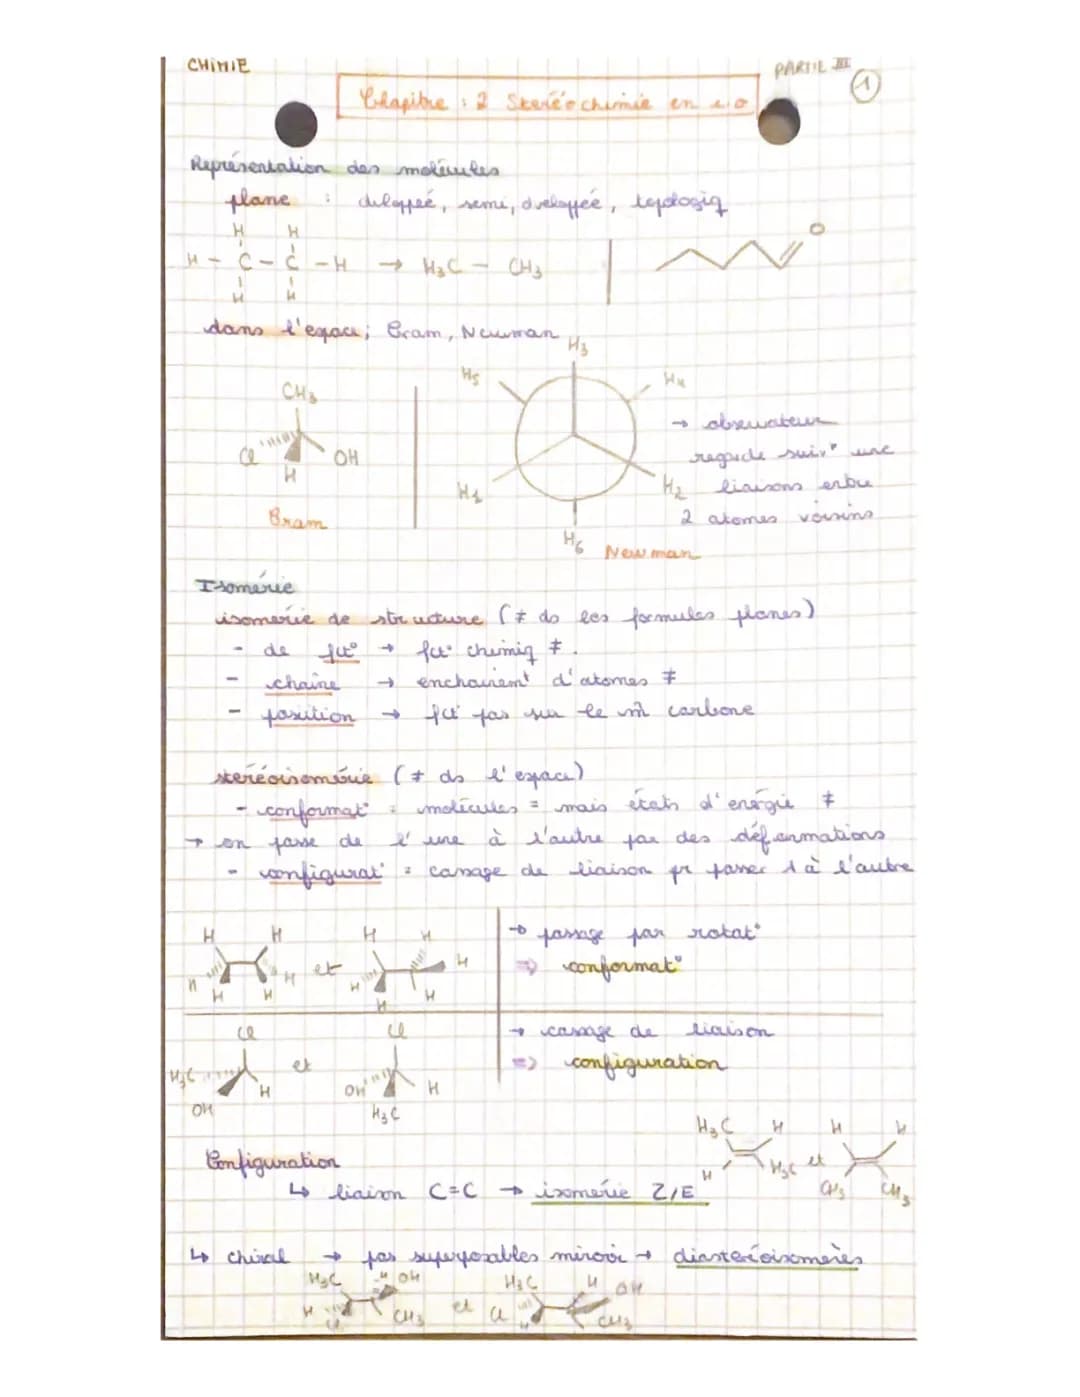 CHIMIE
PARTIE III
1
Chapitre : 2 Stéréochimie en c.o
Représentation des molécules
plane : déloppeé, semi, dveloppeé, topologiq
H H
H - C - C - H → H3C - CH3
H H
O
dans l'espace; Cram, Newman
H3
H5 H4
CH3
Cl OH
H
H1 H2
H6
→ observateur
regarde suivt une
liaisons entre
2 atomes voisins
Cram
Newman
Isomérie
isomérie de structure (≠ ds les formules planes)
- de fct° → fct° chimiq ≠.
- chaine → enchainemt d'atomes ≠
- position → fct° pas sur le m̂ carbone
stéréoisomérie (≠ ds l'espace)
- conformat° = molécules = mais états d'énergie ≠
→ on passe de l'une à l'autre par des déformations
- configurat° = cassage de liaison pr passer 1 à l'autre
H H H H
H H et H H
H H H H
→ passage par rotat°
=> conformat°
Cl Cl
H3C et
OH H OH H
H3C
→ cassage de liaison
=> configuration
H3C H H H
H H3C et CH3 CH3
Configuration
↳ liaison C=C → isomérie Z/E
↳ chiral → pas superposables miroir → diastéréoisomères
H3C H OH H3C H OH
H Cl CH3 et Cl H CH3